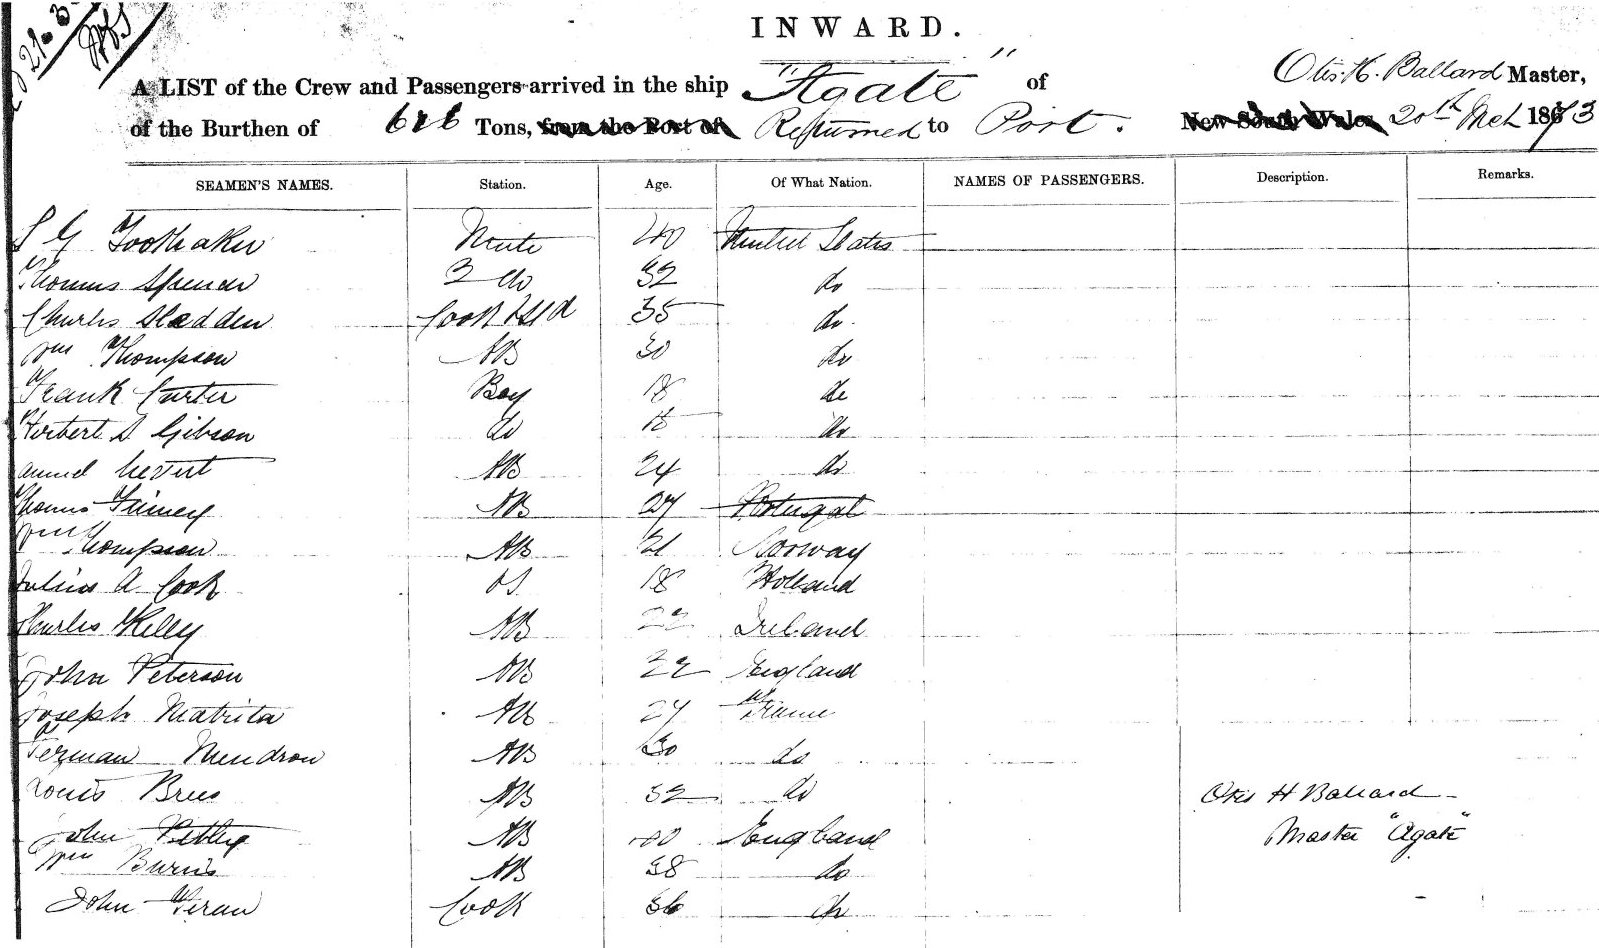 21. 3
INWARD.
A LIST of the Crew and Passengers arrived in the ship "Agate" of Otis. H. Ballard Master,
of the Burthen of Tons, from the Port of Returned to Port. New South Wales 20th Mch 1873
SEAMEN'S NAMES. Station. Age. Of What Nation. NAMES OF PASSENGERS. Description. Remarks.
S G Toothaker Mate 40 United States
Thomas Spencer 2 do 32 do
Charles Sladden Cook & Std 35 do.
Wm Thompson AB 30 do
Frank Carter Boy 18 do
Herbert S Gibson do do
AB 24 do
Thomas Finney AB 27 Portugal
Wm Thompson AB 21 Norway
Julius A Cook OS 18 Holland
Charles Kelly AB 22 Ireland
John Peterson AB 22 England
Joseph AB 27 France
Mendron AB 30 do
Louis Brees AB 32 do Otis H Ballard
John AB 40 England Master "Agate"
Wm Burns AB 38 do
John Cook 36 do